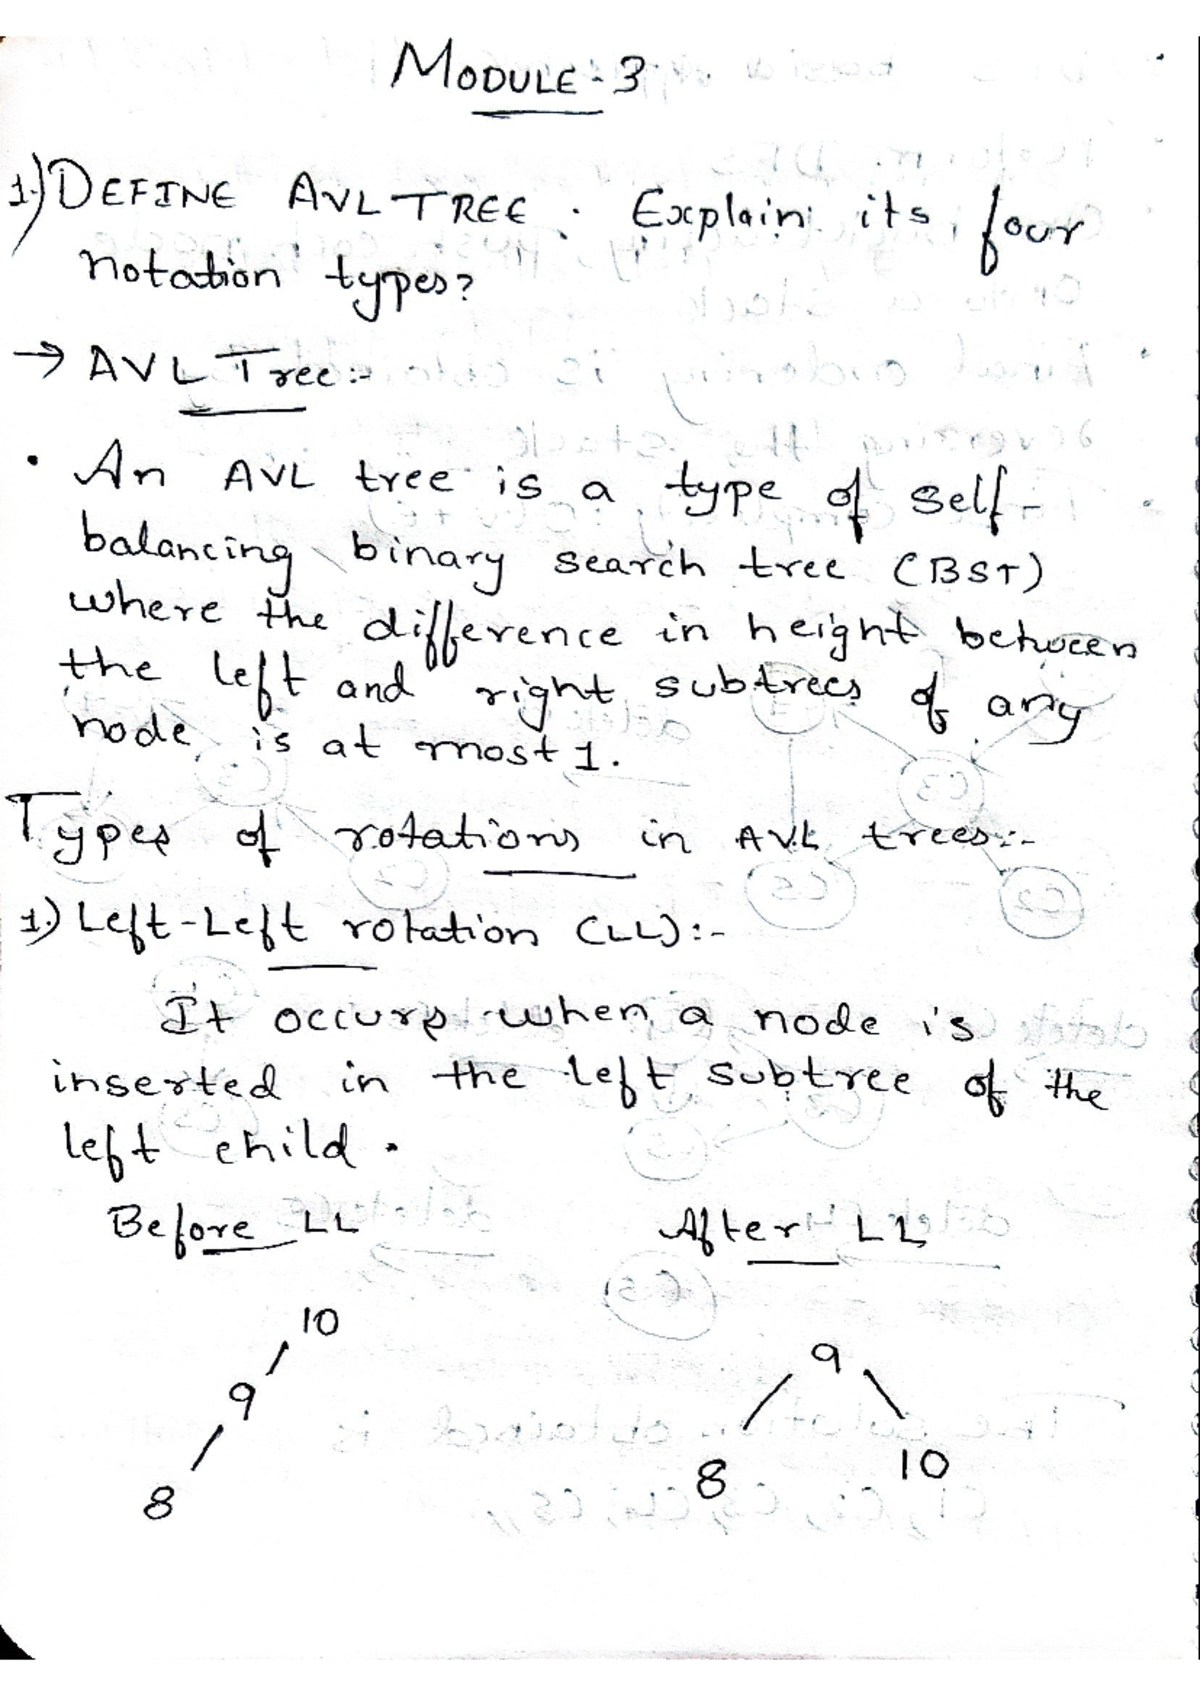 MODULE-3
1.) DEFINE AVL TREE. Explain its four
notation types?
→ AVL Tree:-
• An AVL tree is a type of self-
balancing binary search tree (BST)
where the difference in height between
the left and right subtrees of any
node is at most 1.
Types of rotations in AVL trees:-
1.) Left-Left rotation (LL):-
It occurs when a node is
inserted in the left subtree of the
left child.
Before LL After LL
10
9
8
9
8 10